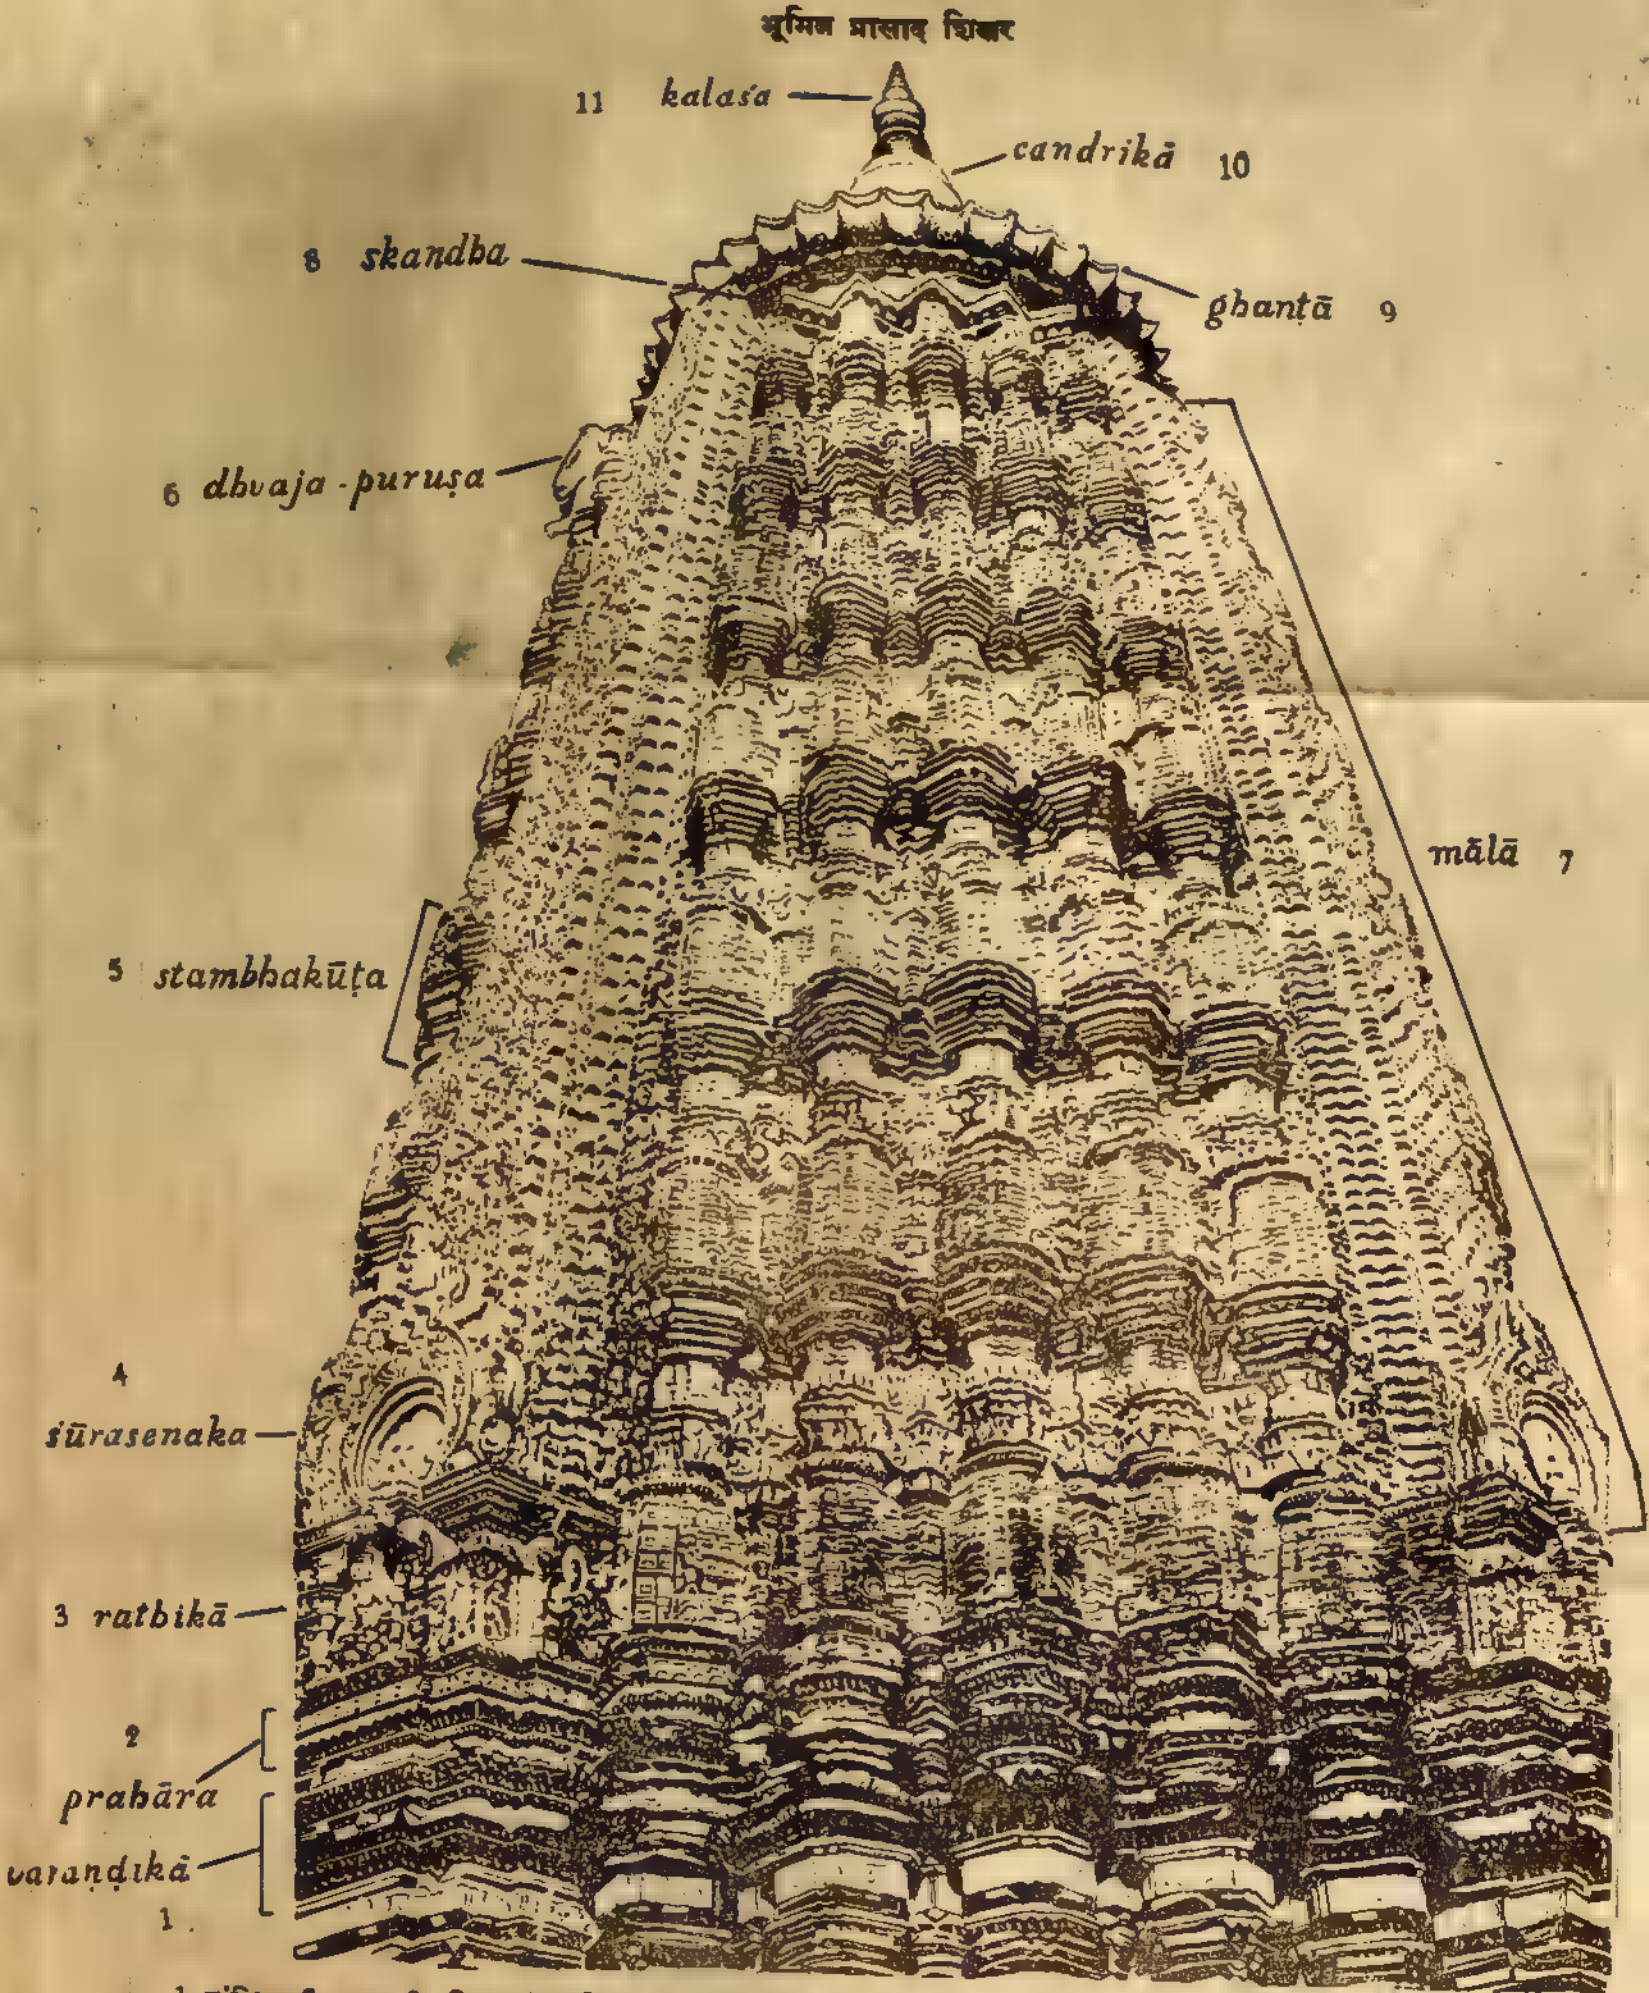 भूमिज प्रासाद शिखर
11 kalaśa
candrikā 10
8 skandha
ghaṇṭā 9
6 dhvaja-puruṣa
mālā 7
5 stambhakūṭa
4
śūrasenaka
3 rathikā
2
prahāra
varaṇḍikā
1.